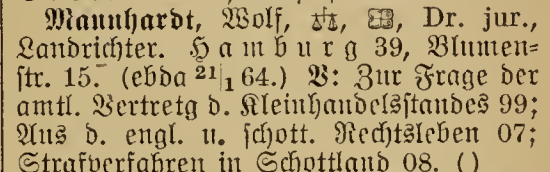 Mannhardt, Wolf, ⚖, Dr. jur.,
Landrichter. Hamburg 39, Blumen=
str. 15. (ebda 21/1 64.) V: Zur Frage der
amtl. Vertretg d. Kleinhandelsstandes 99;
Aus d. engl. u. schott. Rechtsleben 07;
Strafverfahren in Schottland 08. ()